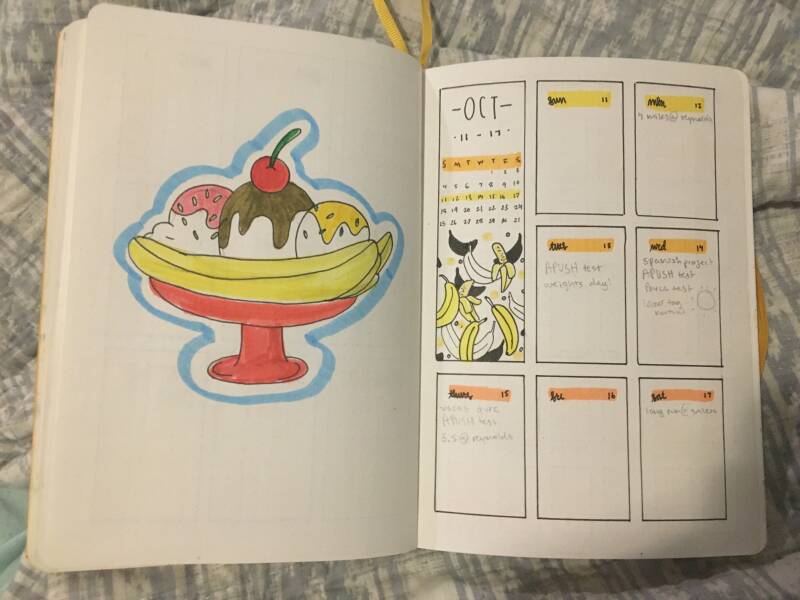 -OCT-
·11-17·
S M T W T F S
1 2 3
4 5 6 7 8 9 10
11 12 13 14 15 16 17
18 19 20 21 22 23 24
25 26 27 28 29 30 31
sun 11
mon 12
miles @ reynolds
tues 13
APUSH test
weights day!
wed 14
spanish project
APUSH test
test
thurs 15
vocab quiz
APUSH test
5.5 @ reynolds
fri 16
sat 17
long run @ salem